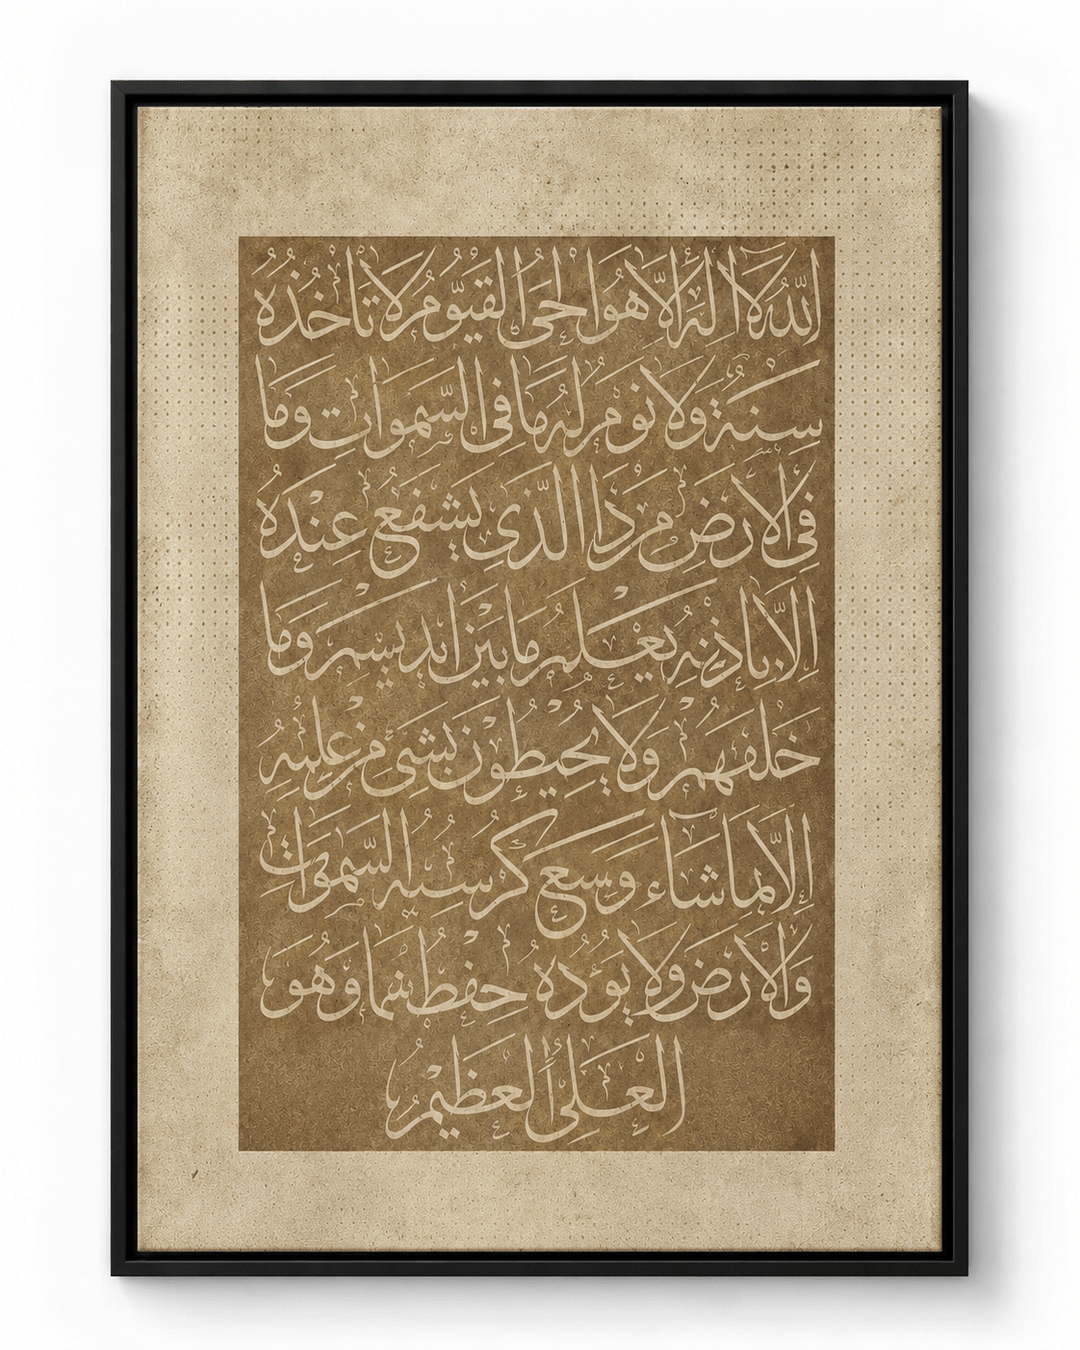 الله لا اله الا هو الحي القيوم لا تاخذه
سنة ولا نوم له ما في السموات وما
في الارض من ذا الذي يشفع عنده
الا باذنه يعلم ما بين ايديهم وما
خلفهم ولا يحيطون بشئ من علمه
الا بما شاء وسع كرسيه السموات
والارض ولا يؤده حفظهما وهو
العلي العظيم